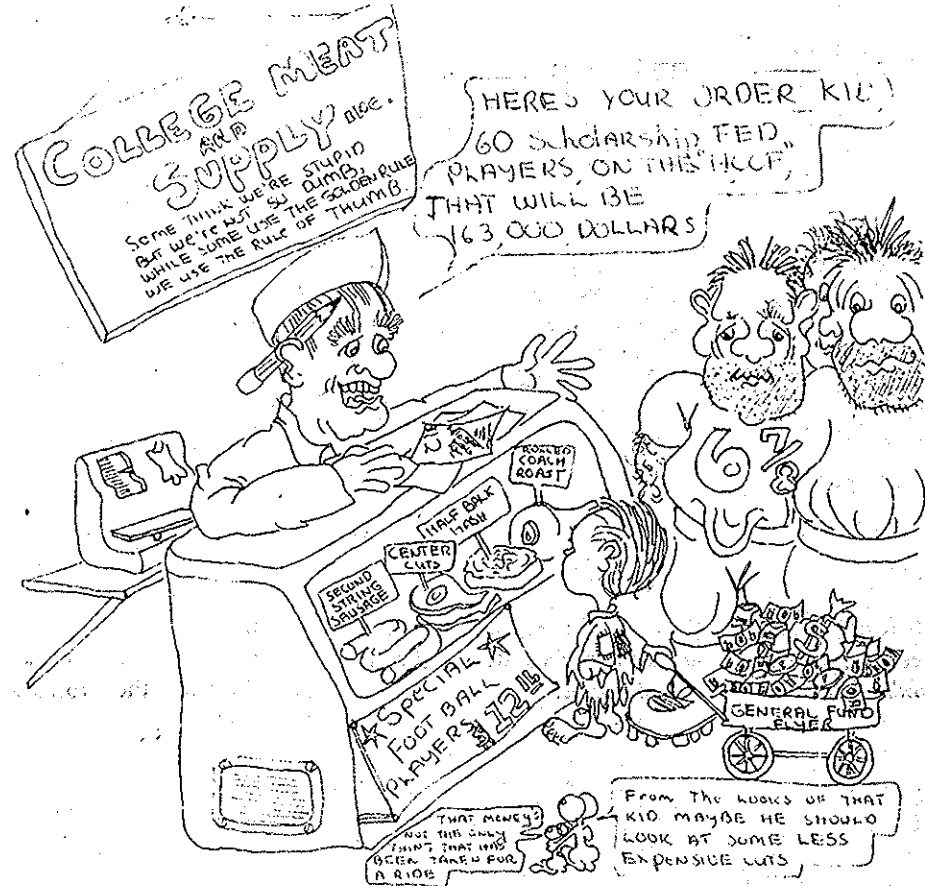 COLLEGE MEAT
AND
SUPPLY
SOME THINK WE'RE STUPID
BUT WE'RE NOT SO DUMB,
WHILE SOME USE THE GOLDEN RULE
WE USE THE RULE OF THUMB.
HERES YOUR ORDER KID,
60 Scholarship FED
PLAYERS, ON THE "HOOF",
THAT WILL BE
163,000 DOLLARS
67/8
ROLLED
COACH
ROAST
HALF BACK
HASH
CENTER
CUTS
SECOND
STRING
SAUSAGE
SPECIAL
FOOT BALL
PLAYERS 12
GENERAL FUND
FLYER
THAT MONEY'S
NOT THE ONLY
THING THAT HAS
BEEN TAKEN FOR
A RIDE
From The LOOKS OF THAT
KID MAYBE HE SHOULD
LOOK AT SOME LESS
EXPENSIVE CUTS